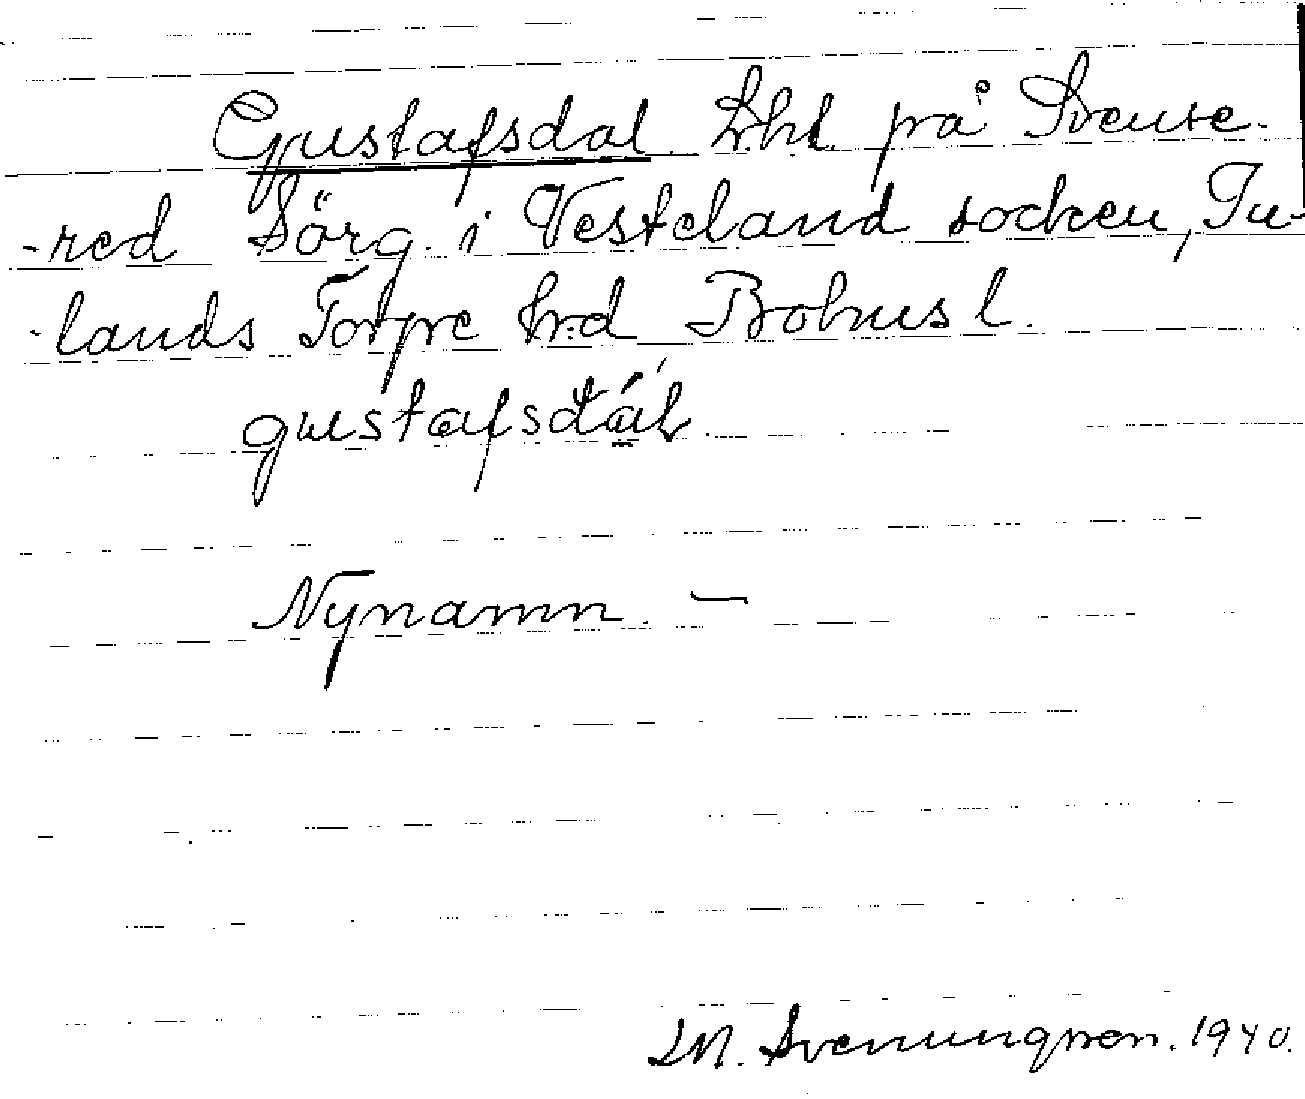 Gustafsdal lht på Svense-
-red Sörg. i Vesteland socken, In-
-lands Torpe hrd Bohusl.
gustafsdáL
Nynamn. —
M. Svenungsson. 1940.